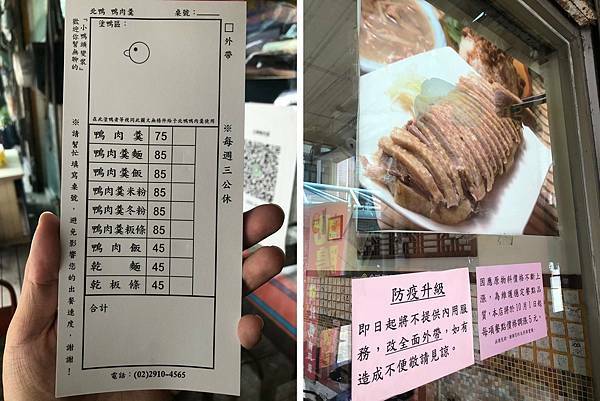 北鴨 鴨肉羹
桌號：
外帶
塗鴨區：
『小鴨頭變裝』
歡迎你幫無聊的
在此塗鴨者等視同此圖文無條件給予北鴨鴨肉羹使用
鴨肉羹 75
鴨肉羹麵 85
鴨肉羹飯 85
鴨肉羹米粉 85
鴨肉羹冬粉 85
鴨肉羹板條 85
鴨肉飯 45
乾麵 45
乾板條 45
合計
電話：(02)2910-4565
※每週三公休
※請幫忙填寫桌號，避免影響您的出餐速度，謝謝！
防疫升級
即日起將不提供內用服
務，改全面外帶，如有
造成不便敬請見諒。
因應原物料價格不斷上
漲，為維護穩定餐點品
質，本店將於10月1日起
每項餐點價格調漲5元。